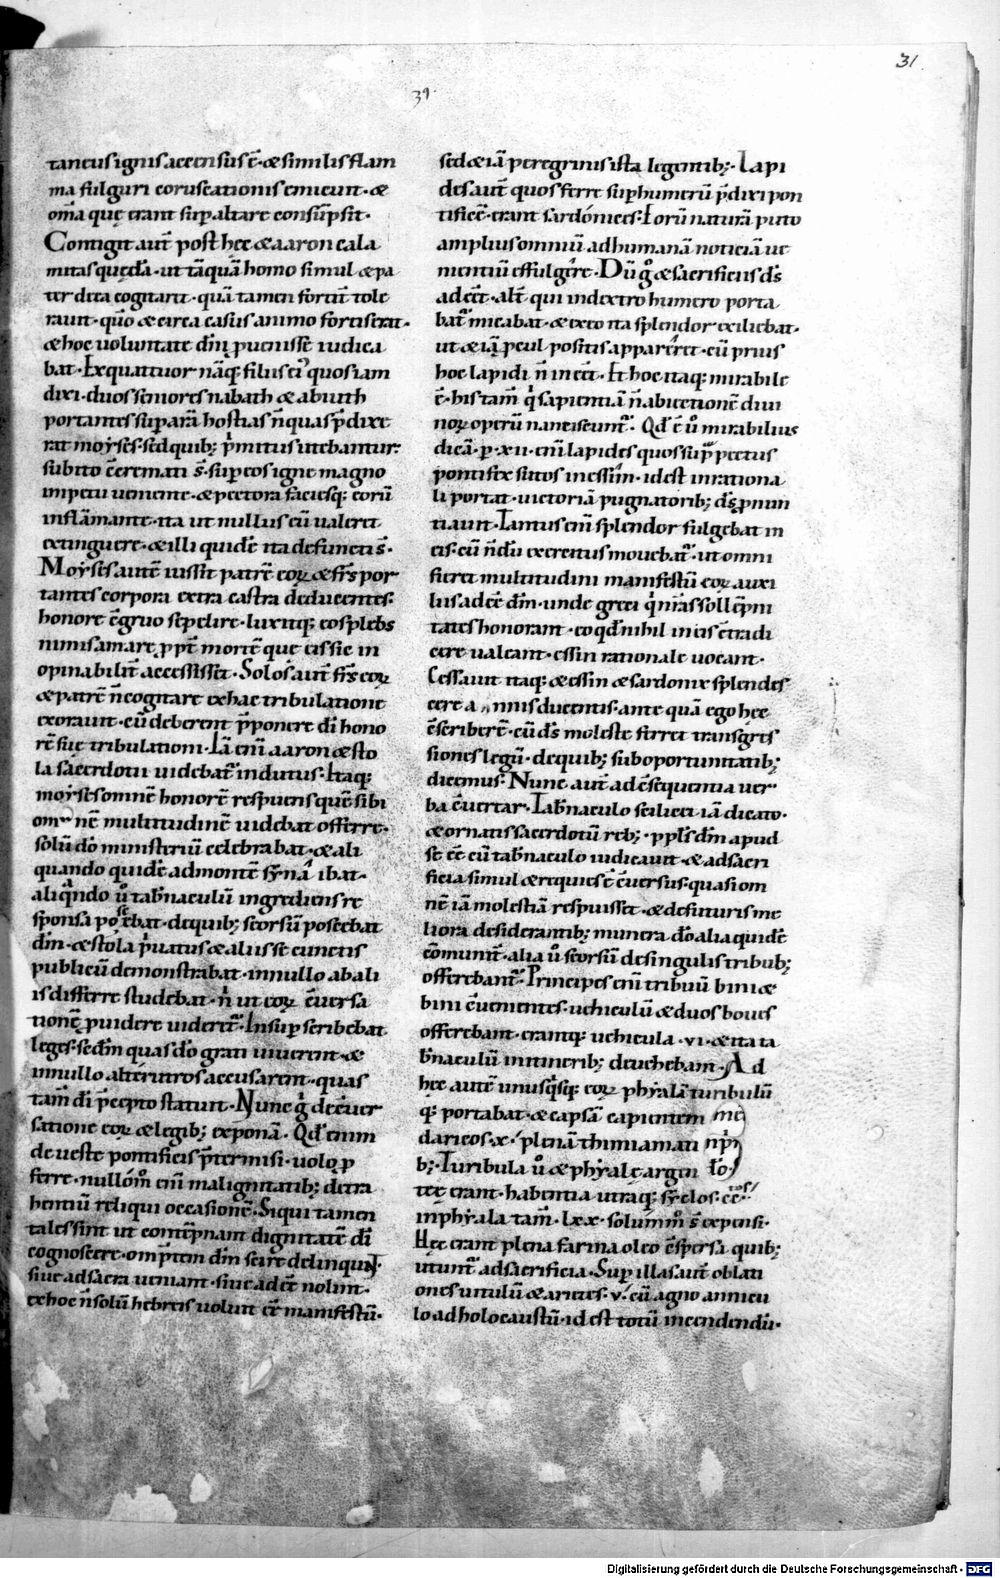 31
39
taneus ignis accensus ē· & similis flam
ma fulguri coruscationis emicuit· &
om̄a quę erant sup altare consūpsit·
Contigit aut̄ post hęc & aaron cala
mitas quędā· ut tāquā homo simul & pa
ter dira cogitaret· quā tamen fortit̄ tole
rauit· qm̄o & circa casus animo fortis erat·
& hoc uoluntate dn̄i puenisse iudica
bat· Ex quattuor nāq; filiis ei᾿ quos iam
dixi· duos seniores nabath & abiuth
portantes sup arā hostias n̄ quas p̄dixe
rat moẏses· sed quib; p̄mitus utebantur:
subito c̄cremati s̄· sup eos igne magno
impetu ueniente· & pectora faciesq; eorū
inflāmante· ita ut nullus eū ualeret
extinguere· & illi quidē ita defuncti s̄·
Moẏses autē iussit patrē eoꝝ & fr̄s por
tantes corpora extra castra deducentes·
honore c̄gruo sepelire· luxitq; eos plebs
nimis amare ppt̄ mortē que eis sic in
opinabilit̄ accessisset· Solos aut̄ fr̄s eoꝝ
& patrē n̄ cogitare ex hac tribulatione
exorauit· cū deberent p̄ponere dī hono
rē sue tribulationi· Iā enī aaron & sto
la sacerdotii uidebat̄ indutus· Itaq;
moẏses omnē honorē respuens quē sibi
omnē multitudinē uidebat offerre·
solū dō ministeriū celebrabat· & ali
quando quidē ad montē sẏna ibat·
aliqndo ů tab̄naculū ingrediens re
sponsa poscebat· de quib; seorsū poscebat
dīn· & stola p̄uatus & aliis se cunctis
publicū demonstrabat· in nullo ab ali
is differre studebat· n̄ ut eoꝝ c̄uersa
tionē puidere uideret̄· Insup scribebat
leges· sedm̄ quas dō grati uiuerent· &
in nullo alterutros accusarent· quas
tam̄ dī p̄cepto statuit· Nunc g̊ de c̄uer
satione eoꝝ & legib; exponā· Qđ enim
de ueste pontificis p̄termisi· uolo p
ferre· nullōm̄ enī malignitatib; detra
hentiū reliqui occasionē· Siqui tamen
tales sint ut contēpnant dignitatē dī
cognoscere· om̄ptem dīn scire delinquunt·
siue ad sacra ueniant· siue adeē nolint·
ex hoc n̄ solū hebreis uoluit eē manifestū·
sed & iā peregrinis ista legentib;· Lapi
des aut̄ quos ferre sup humerū p̄dixi pon
tificē· erant sardónices· Eorū naturā puto
amplius omniū ad humanā noticiā ue
nientiū effulgere· Dū g̊ & sacrificiis d̄s
adeēt· alt̄ qui in dextro humero porta
bat̄ micabat· & ex eo ita splendor exiliebat·
ut & iā pcul positis appareret· cū prius
hoc lapidi n̄ inēet· Et hoc itaq; mirabile
ē· his tam̄ q̇ sapientiā n̄ abiectionē diui
noꝝ operū nanciscunt̄· Qđ ē ů mirabilius
dicā· p· xii· enī lapides quos sup pectus
pontifex sutos in essīm· id est in rationa
li portat· uictoriā pugnatorib; d̄s pnun
tiauit· Tantus enī splendor fulgebat in
eis· cū n̄dū exercitus mouebat̄· ut omni
fieret multitudini manifestū eoꝝ auxi
lius adeē dīn· unde greci q̇ nr̄as sollēpni
tates honorant· eo qđ nihil in eis c̄tradi
cere ualeant· essin rationale uocant·
Cessauit itaq; & essin & sardonix splendes
cere annis ducentis· ante quā ego hęc
c̄scriberē· cū d̄s moleste ferret transgres
siones legū· de quib; sub oportunitatib;
dicemus· Nunc aut̄ ad c̄sequentia uer
ba c̄uertar· Tab̄naculo scilicet iā dicato·
& ornatis sacerdotū reb;· ppl̄s dīn apud
se eē cū tab̄naculo iudicauit· & ad sacri
ficia simul & requies ē c̄uersus· quasi om
nē iā molestiā respuisset· & de futuris me
liora desiderantib; munera dō alia quidē
c̄omunit̄· alia ů seorsū de singulis tribub;
offerebant̄· Principes enī tribuū bini &
bini c̄uenientes· uehiculū & duos boues
offerebant· erantq; uehicula· vi· & ita ta
b̄naculū in itinerib; deuehebant· Ad
hęc autē unusq̇sq; eoꝝ phẏalā turibulū
q; portabat· & capsā capientem me
daricos· x· plenā thimiamati
b;· Turibula ů & phẏalę argen
teę erant· habentia utraq; sẏclos· cc·
in phẏala tam̄· lxx· solummō s̄ expensi·
Hęc erant plena farina oleo c̄spersa quib;
utunt̄ ad sacrificia· Sup illas aut̄ oblati
ones uitulū & arietes· v· cū agno annicu
lo ad holocaustū· id est totū incendendū·
Digitalisierung gefördert durch die Deutsche Forschungsgemeinschaft - DFG